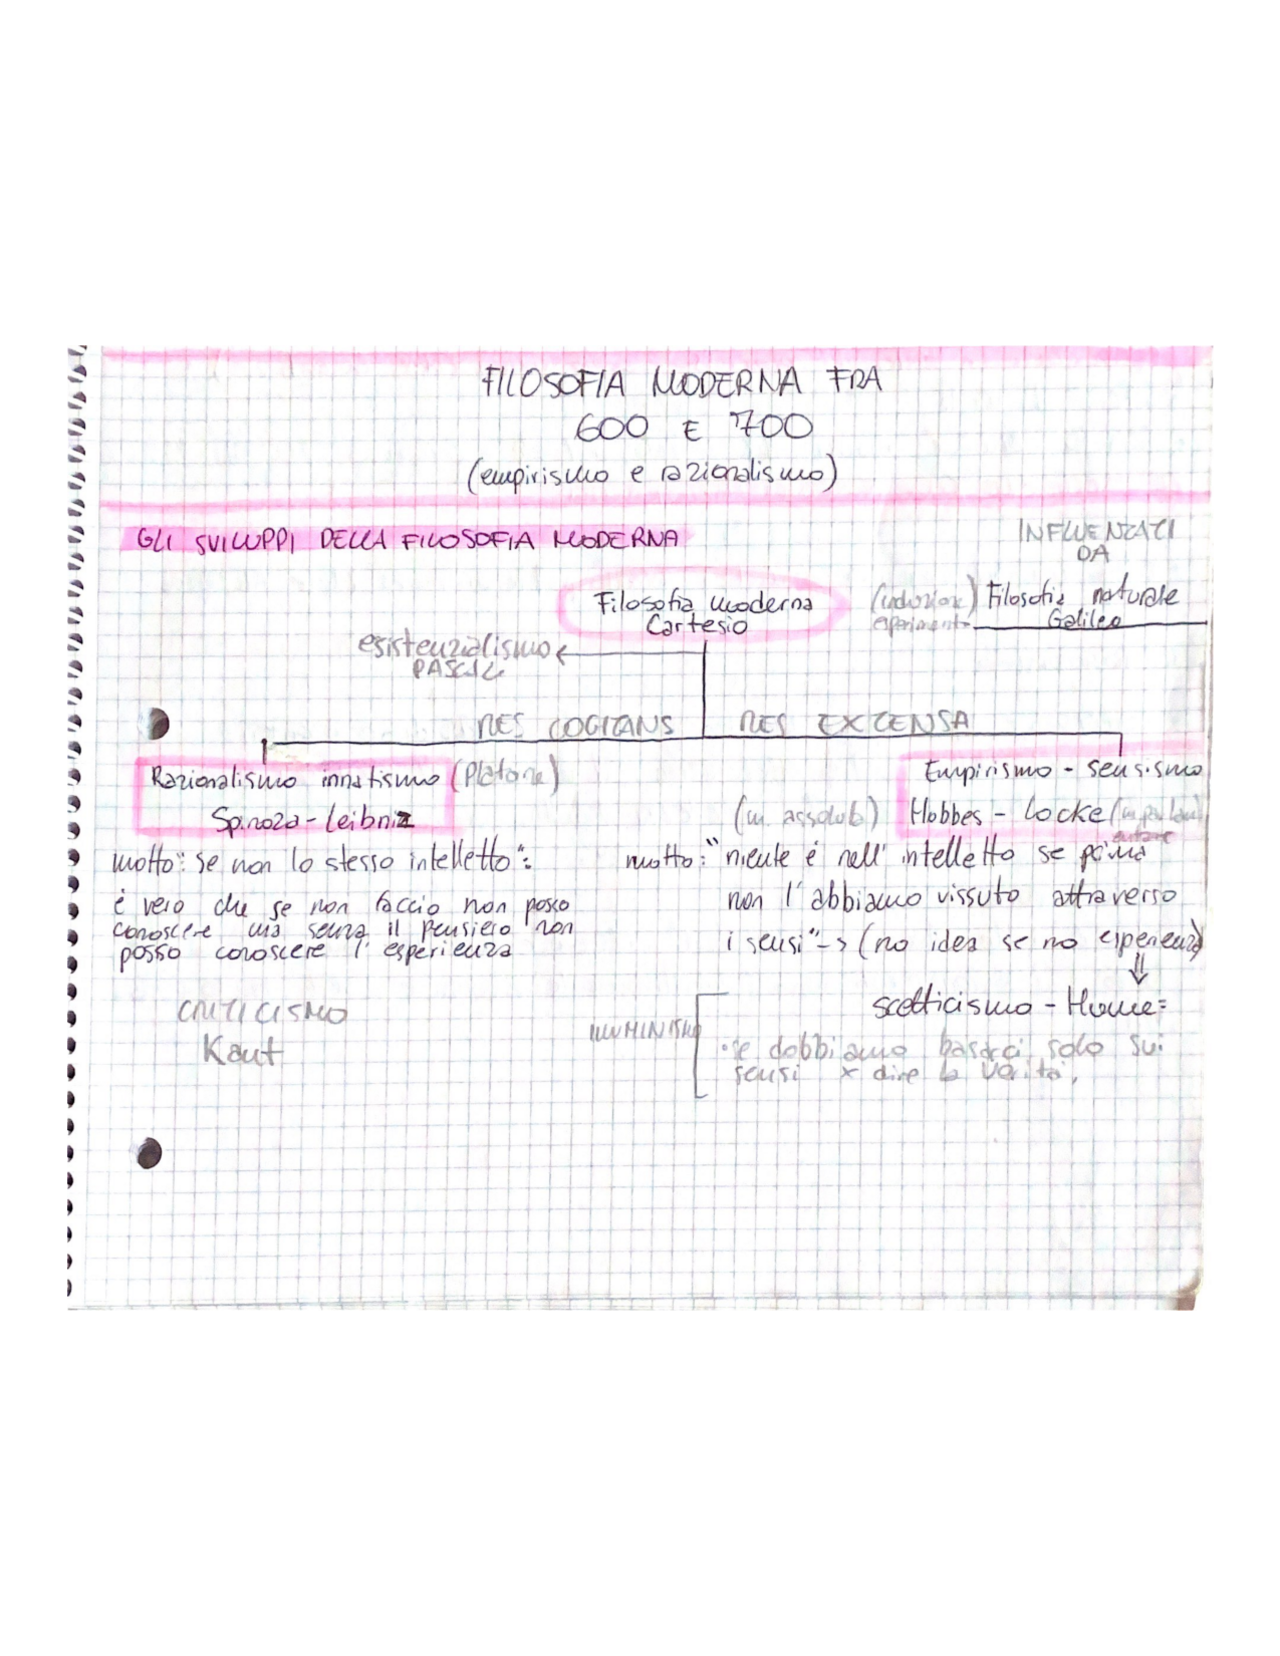 FILOSOFIA MODERNA FRA
600 E 700
(empirismo e razionalismo)
GLI SVILUPPI DELLA FILOSOFIA MODERNA
INFLUENZATI
DA
Filosofia moderna
Cartesio
(induzione)
esperimento
Filosofia naturale
Galileo
esistenzialismo
PASCAL
RES COGITANS
RES EXTENSA
Razionalismo innatismo (Platone)
Spinoza - Leibniz
Empirismo - sensismo
(m. assoluta) Hobbes - Locke
motto: se non lo stesso intelletto":
è vero che se non faccio non posso
conoscere ma senza il pensiero non
posso conoscere l'esperienza
motto: "niente è nell'intelletto se prima
non l'abbiamo vissuto attraverso
i sensi" -> (no idea se no esperienza)
CRITICISMO
Kant
ILLUMINISMO
scetticismo - Hume:
• se dobbiamo basarci solo sui
sensi x dire la verità,